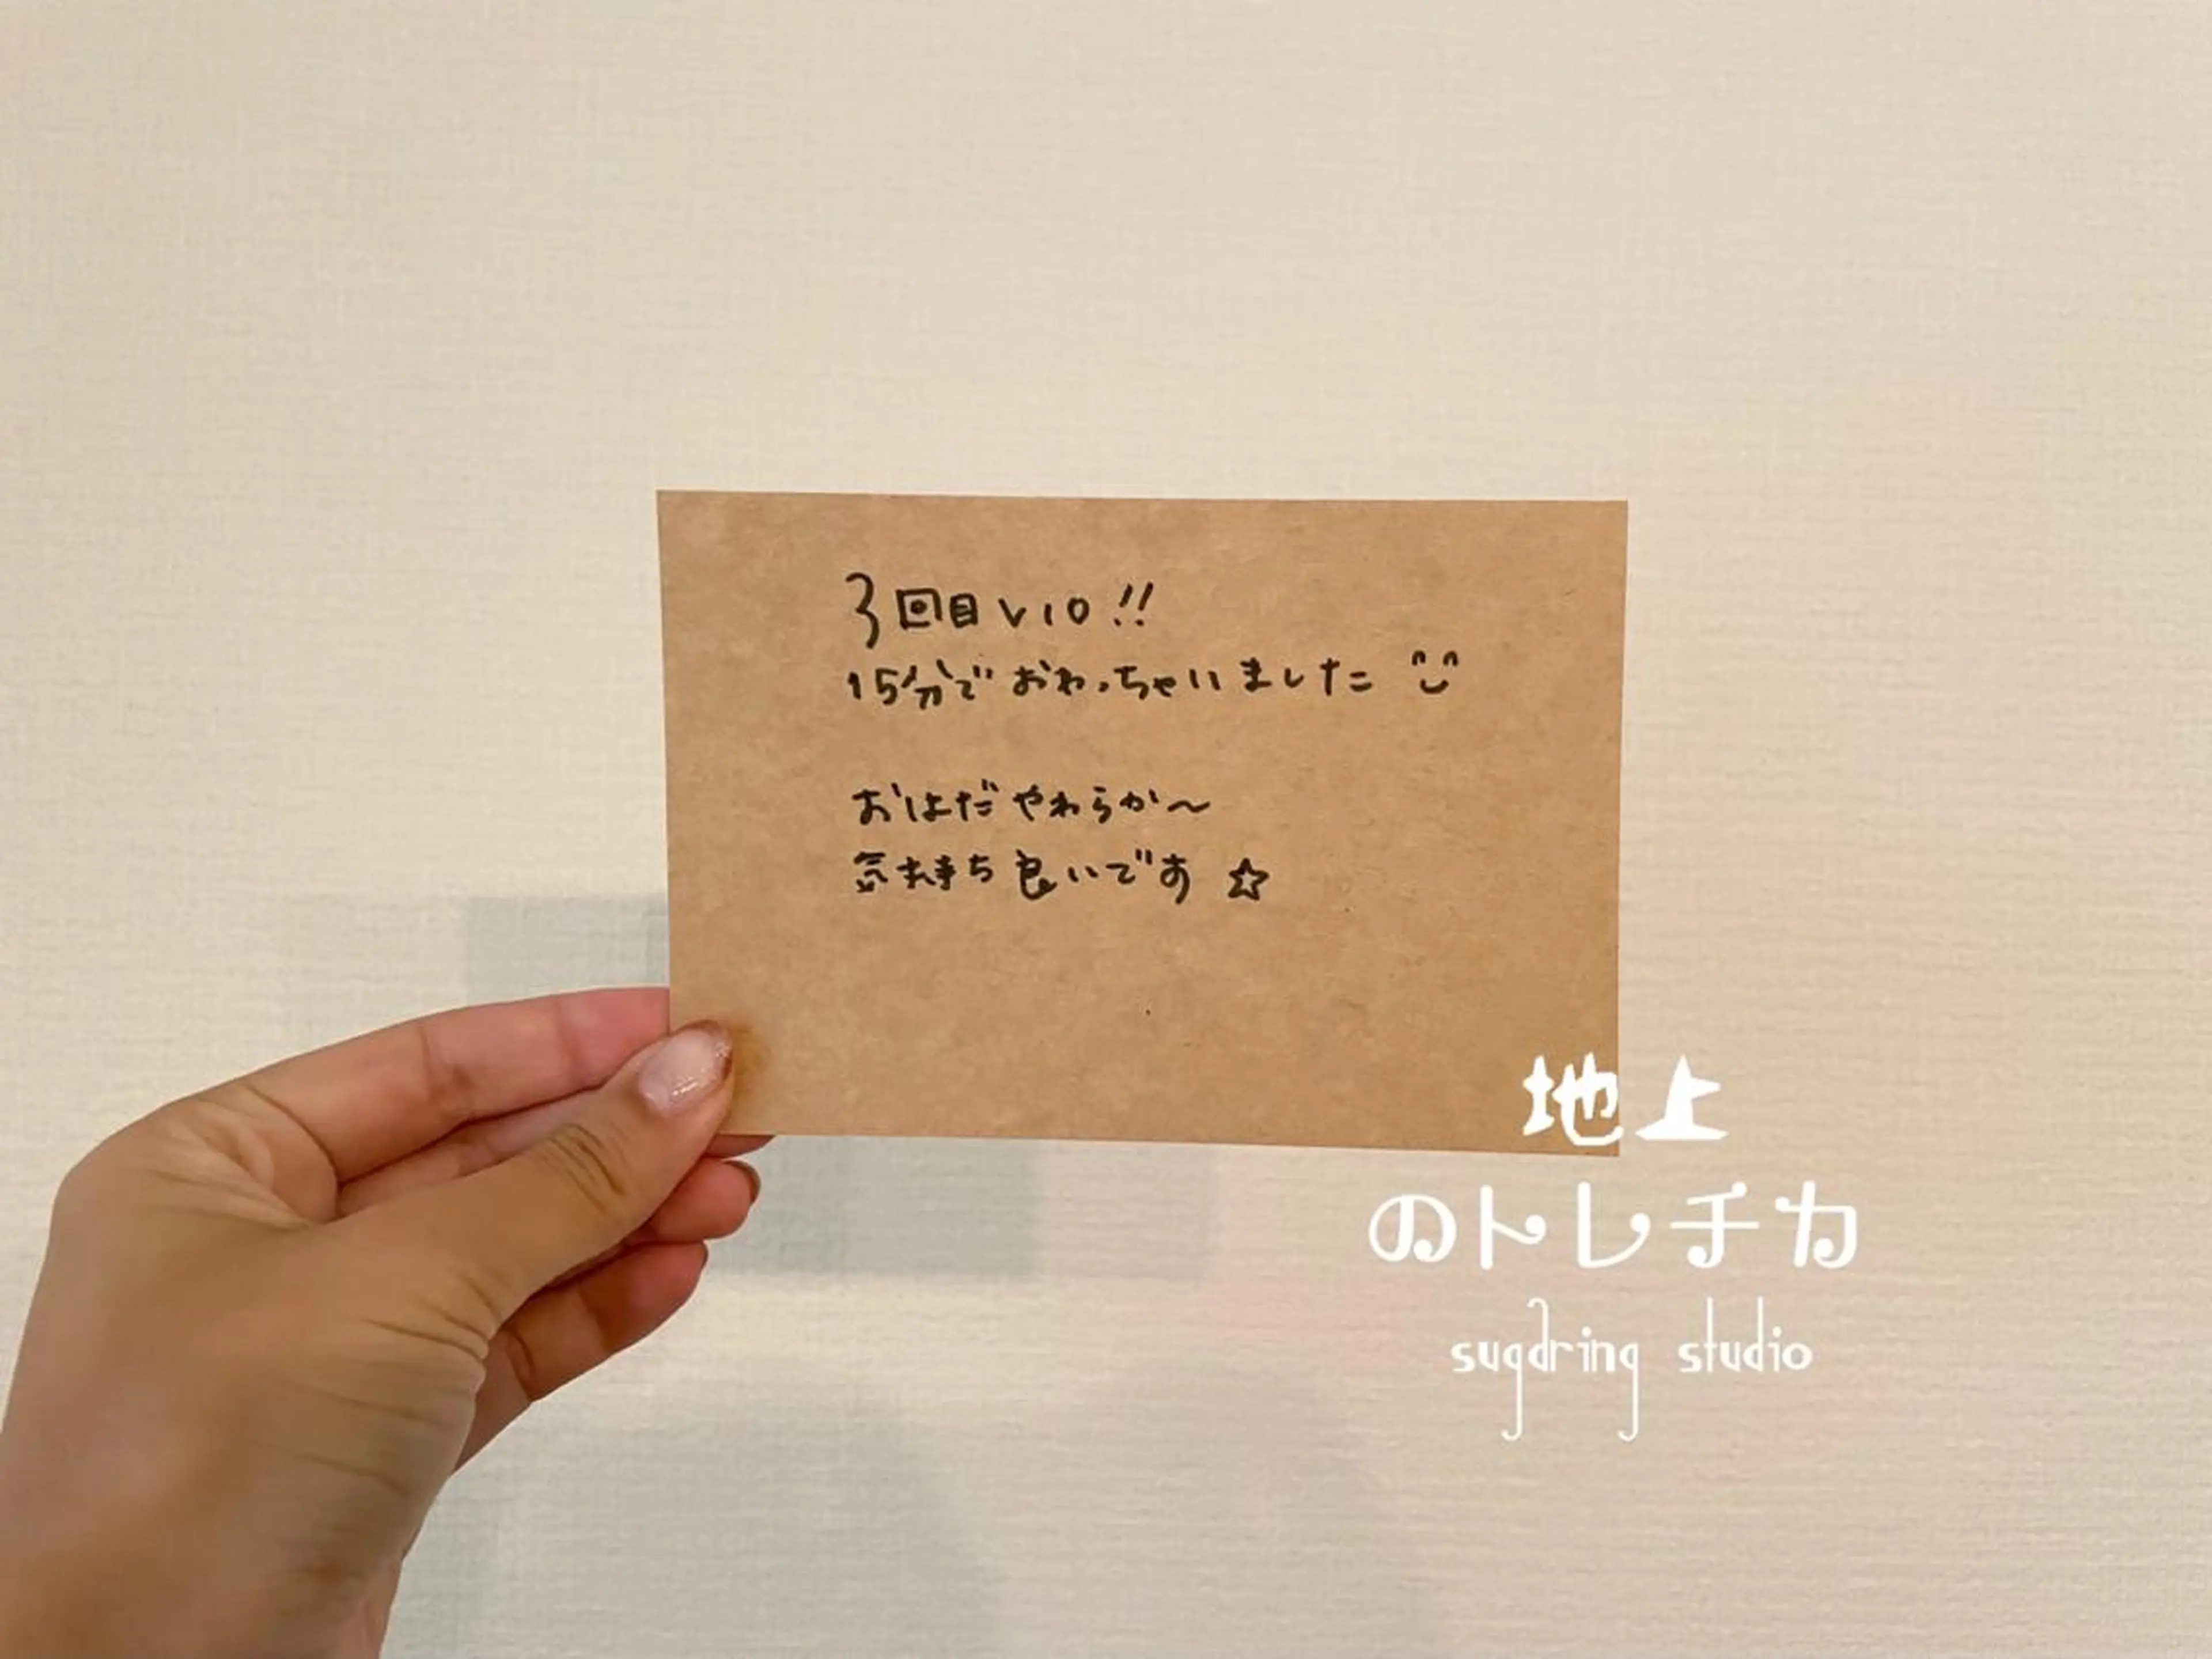 3回目VIO!!
15分でおわっちゃいました
おはだやわらか〜
気持ち良いです☆
地上
のトレチカ
sugdring studio